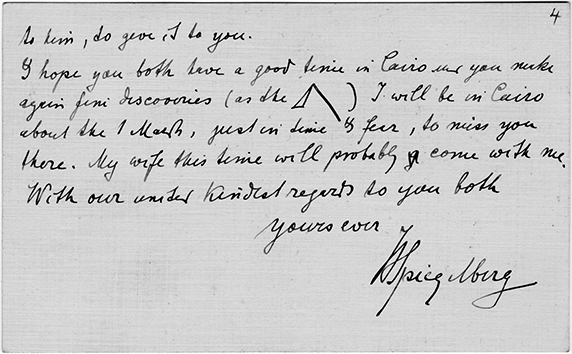 4
to him, to give it to you.
I hope you both have a good time in Cairo and you make
again fine discoveries (as the ) I will be in Cairo
about the 1 March, just in time I fear, to miss you
there. My wife this time will probably come with me.
With our united kindest regards to you both
yours ever
WSpiegelberg